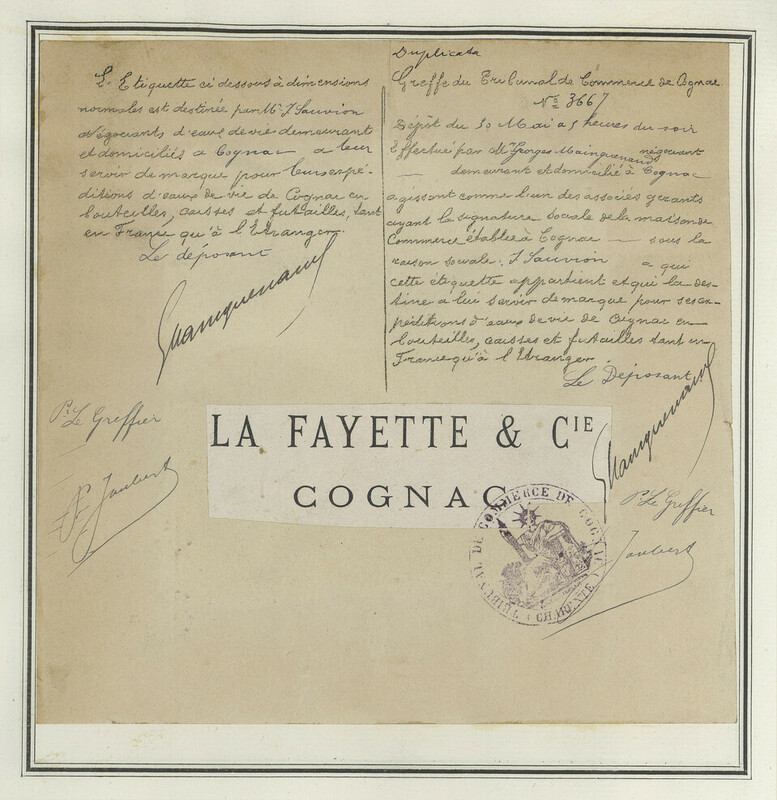 L'Etiquette ci dessous à dimensions
normales est destinée par Mr J Sauvion
négociants d'eaux de vie demeurant
et domiciliés à Cognac à leur
servir de marque pour leurs expé-
ditions d'eaux de vie de Cognac en
bouteilles, caisses et futailles, tant
en France qu'à l'Etranger.
Le déposant
GMainguenaud
Pr. Le Greffier
Joubert
Duplicata
Greffe du Tribunal de Commerce de Cognac
No 3667
Dépôt du 30 Mai à 5 heures du soir
Effectué par Mr Georges Mainguenaud négociant
demeurant et domicilié à Cognac
agissant comme l'un des associés gérants
ayant la signature sociale de la maison de
Commerce établie à Cognac — sous la
raison sociale: J Sauvion à qui
cette étiquette appartient et qui la des-
tine à lui servir de marque pour ses ex-
péditions d'eaux de vie de Cognac en
bouteilles, caisses et futailles tant en
France qu'à l'Etranger
Le Déposant
GMainguenaud
LA FAYETTE & CIE
COGNAC
Pr. Le Greffier
Joubert
TRIBUNAL DE COMMERCE DE COGNAC
(CHARENTE)